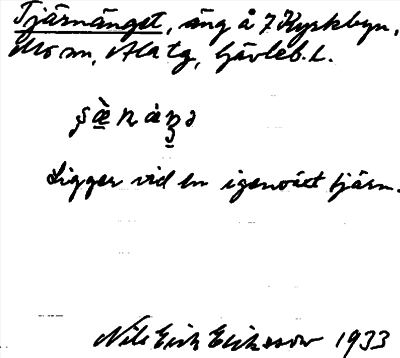 Tjärnänget, äng å 7 Kyrkbyn,
Mo sn, Ala tg, Gävleb. l.
Ligger vid en igenväxt tjärn.
Nils Erik Eriksson 1933